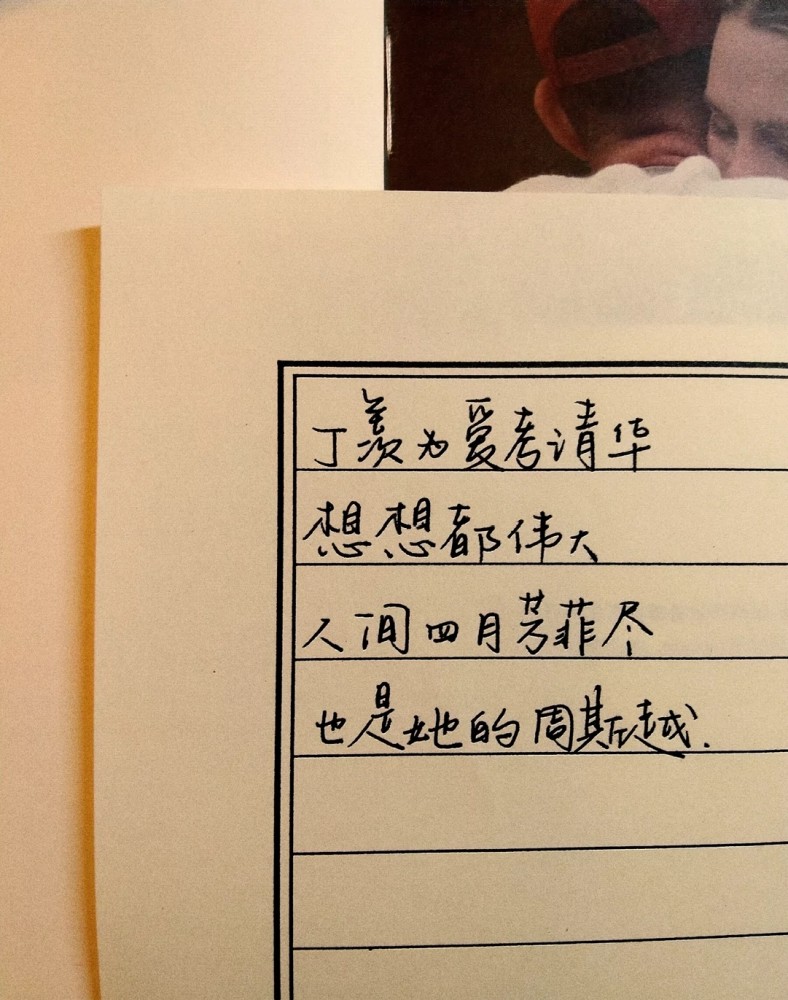 丁羡为爱考清华
想想都伟大
人间四月芳菲尽
也是她的周斯越.